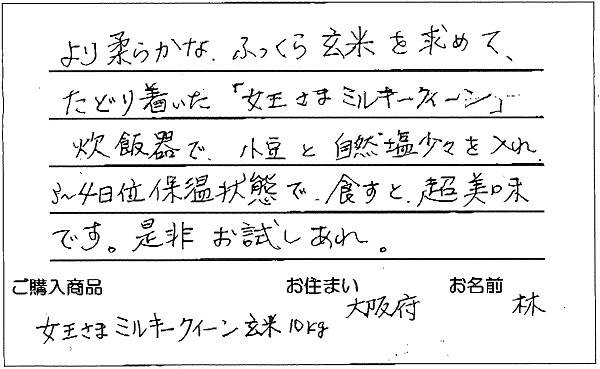 より柔らかな、ふっくら玄米を求めて、
たどり着いた「女王さまミルキークィーン」
炊飯器で、小豆と自然塩少々を入れ、
3〜4日位保温状態で、食すと、超美味
です。是非お試しあれ。
ご購入商品 お住まい お名前
女王さまミルキークイーン玄米10kg 大阪府 林